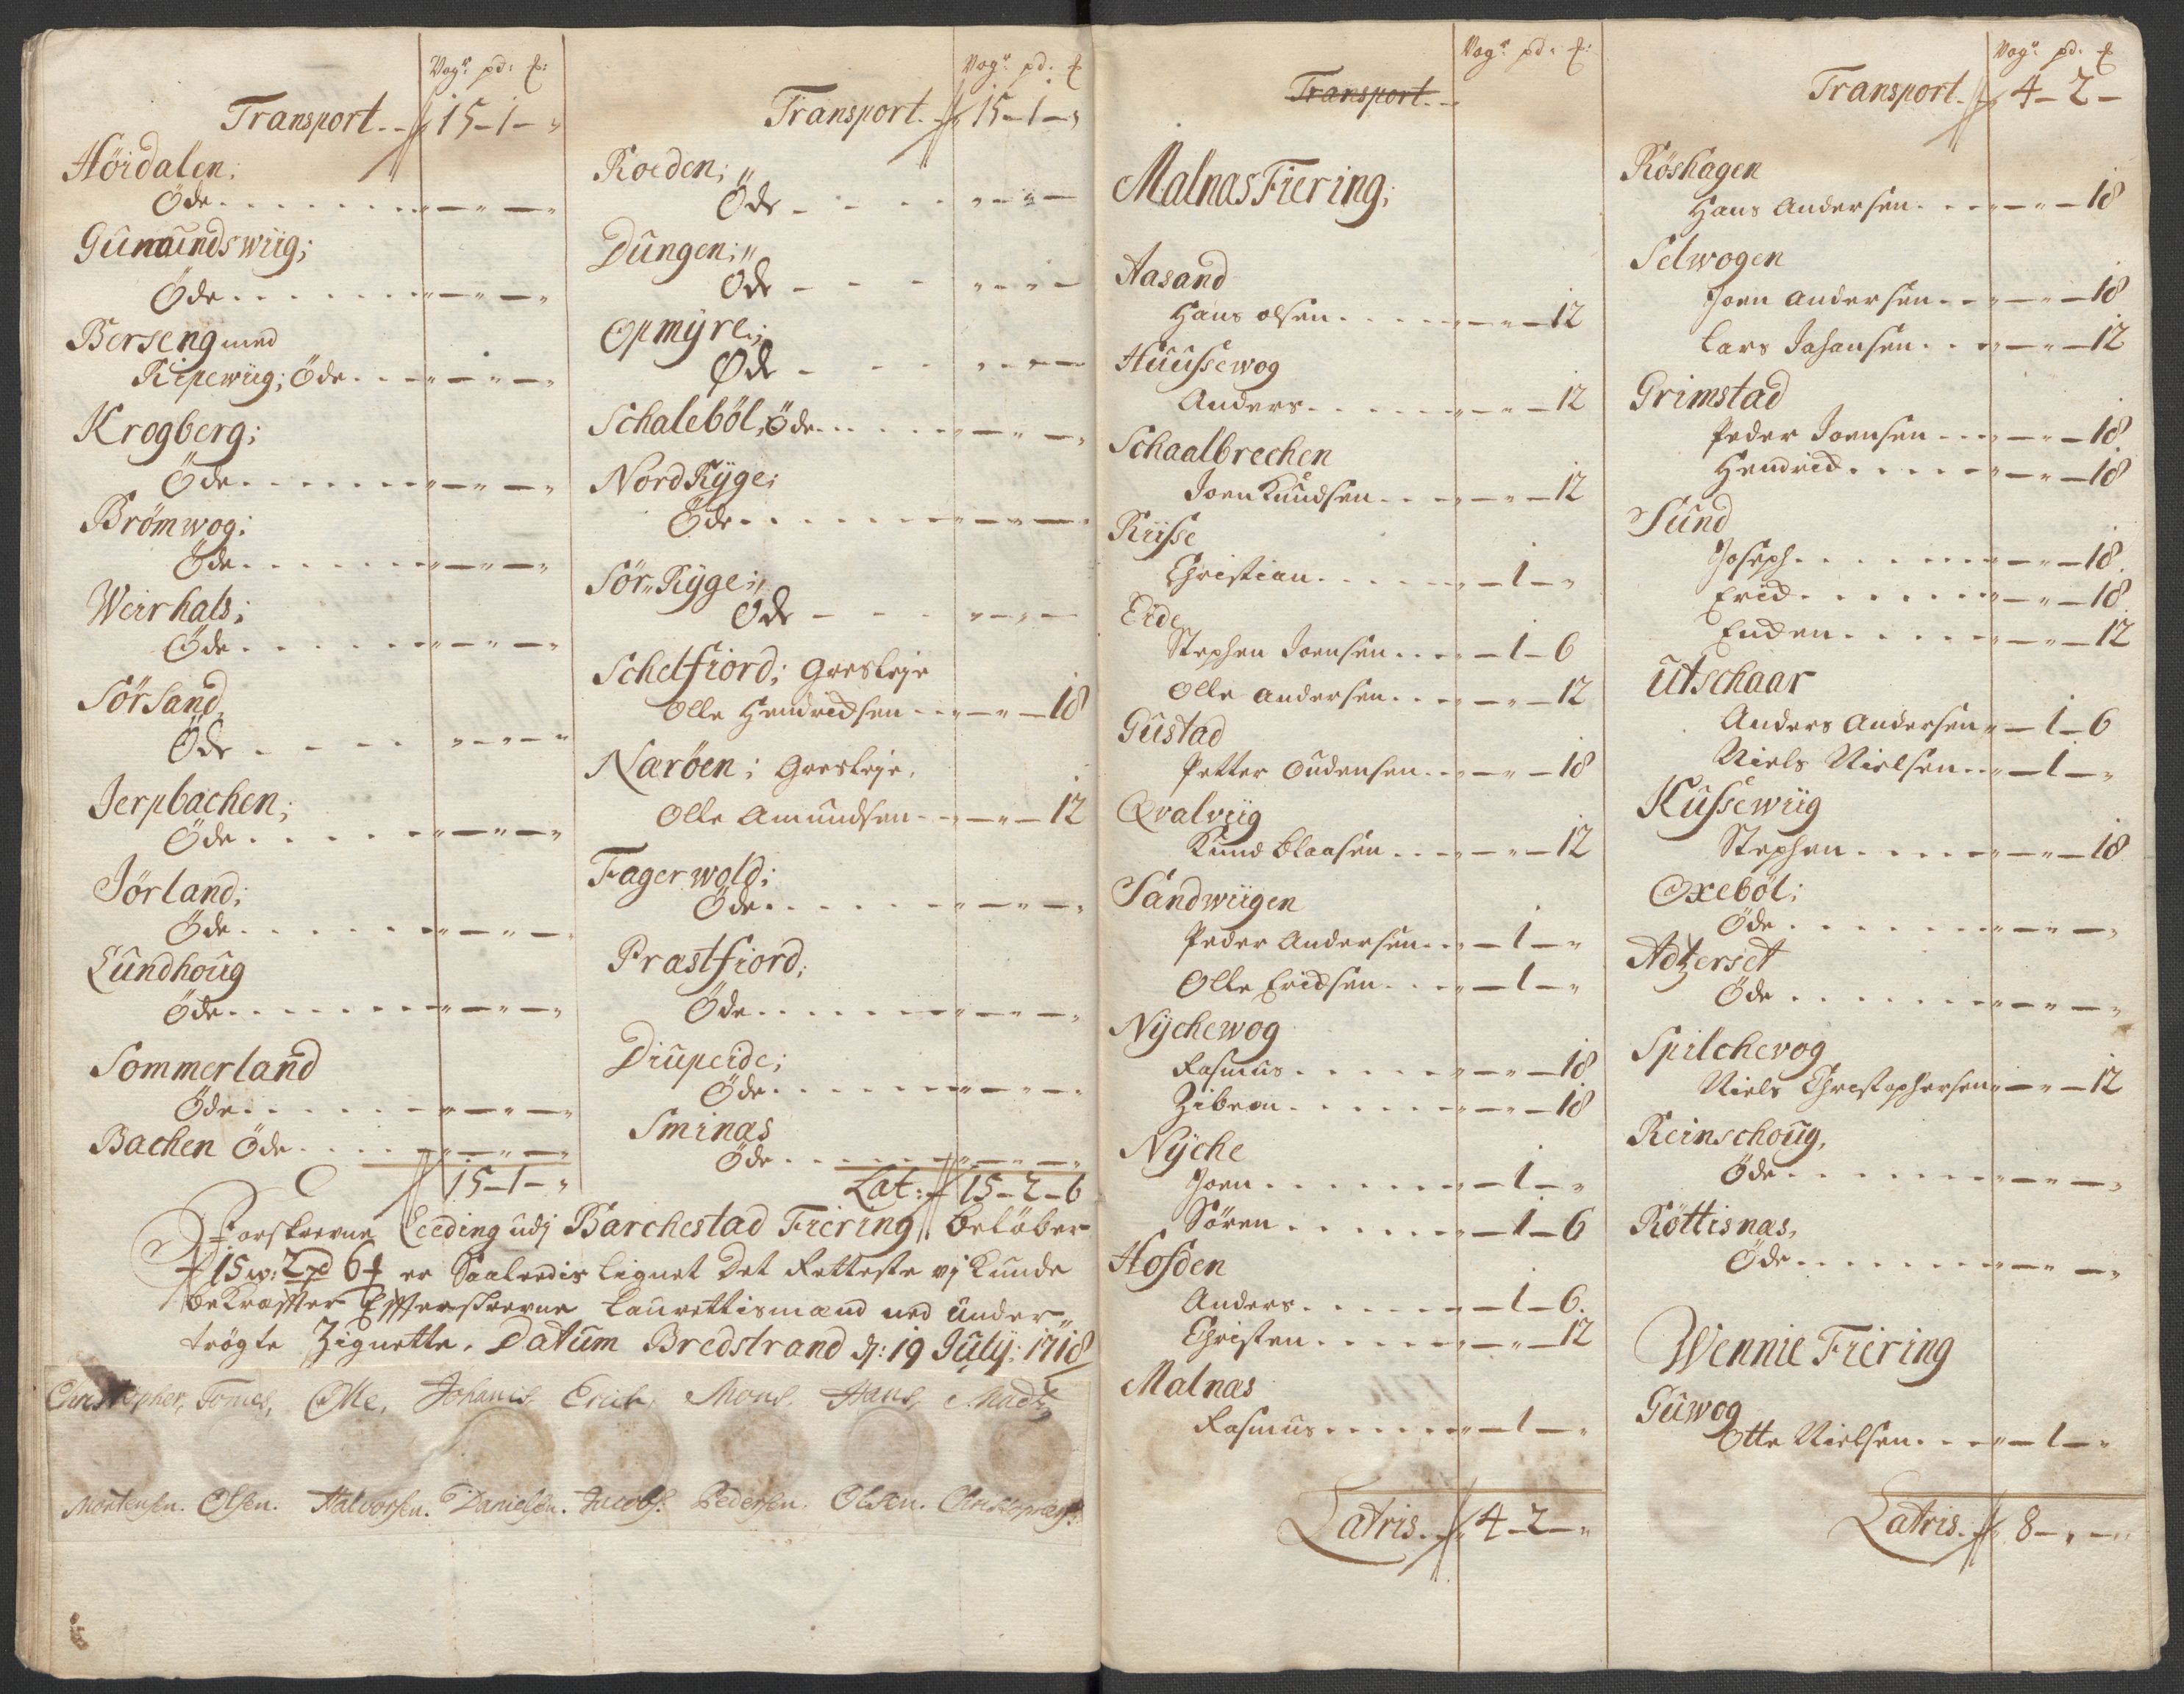 Vog: pd: ℔:
Transport. 15-1-"
Höidalen;
Öde
Gumundswiig;
Öde
Berseng med
Ripewiig; Öde
Krogberg;
Öde
Brømwog;
Öde
Weirhals;
Öde
Sörsand
Öde
Jerpbachen;
Öde
Jörland;
Öde
Lundhoug
Öde
Sommerland
Öde
Bachen Öde
15-1-"
Vog: pd: ℔
Transport. 15-1-"
Roeden;
Öde
Dungen;
Öde
Opmyre;
Öde
Schaleböl, Öde
Nord Ryge;
Öde
Sör Ryge;
Öde
Schelfiord; Gresleje
Olle Hendricksen - 18
Naröen; Gresleje,
Olle Amundsen - 12
Fagerwold;
Öde
Prastfiord;
Öde
Diupeide;
Öde
Sminas
Öde
Lat: 15-2-6
Forskrevne Leeding udj Barchestad Fiering beløber
15 w: 2 pd 6 ℔ er Saaledis lignet Det Retteste vj kunde
bekræffter Effterskrevne Laurettismænd med under
trögte Zignetter. Datum Bredstrand d: 19 July: 1718
Christopher, Tomes, Olle, Johanes, Erich, Mons, Hans, Madtz
Mortensen. Olsen. Halvorsen. Danielsen. Jacobs: Pedersen. Olsen. Christophers:
Vog: pd: ℔:
Transport
Malnas Fiering;
Aasand
Hans Olsen - 12
Huussewog
Anders - 12
Schaalbrechen
Joen Knudsen - 12
Riisse
Christian - 1 -"
Eide
Stephen Joensen - 1 - 6
Olle Andersen - 12
Gustad
Petter Oudensen - 18
Qvalviig
Knud Claasen - 12
Sandwiigen
Peder Andersen - 1 -"
Olle Ericksen - 1 -"
Nychewog
Rasmus - 18
Zibran - 18
Nyche
Joen - 1 -"
Sören - 1 - 6
Hofden
Anders - 1 - 6
Christen - 12
Malnas
Rasmus - 1 -"
Latris. 4-2-"
Vog: pd: ℔
Transport. 4-2-
Röshagen
Hans Andersen - 18
Selwogen
Joen Andersen - 18
Lars Johansen - 12
Grimstad
Peder Joensen - 18
Hendrick - 18
Sund
Joseph - 18
Erick - 18
Enden - 12
Utschaar
Anders Andersen - 1 - 6
Niels Nielsen - 1 -"
Kussewiig
Stephen - 18
Oxeböl;
Öde
Adzerset
Öde
Spilchevog
Niels Christophersen - 12
Reinschoug,
Öde
Röttisnas,
Öde
Wennie Fiering
Guwog
Otte Nielsen - 1 -"
Latris. 8-"-"